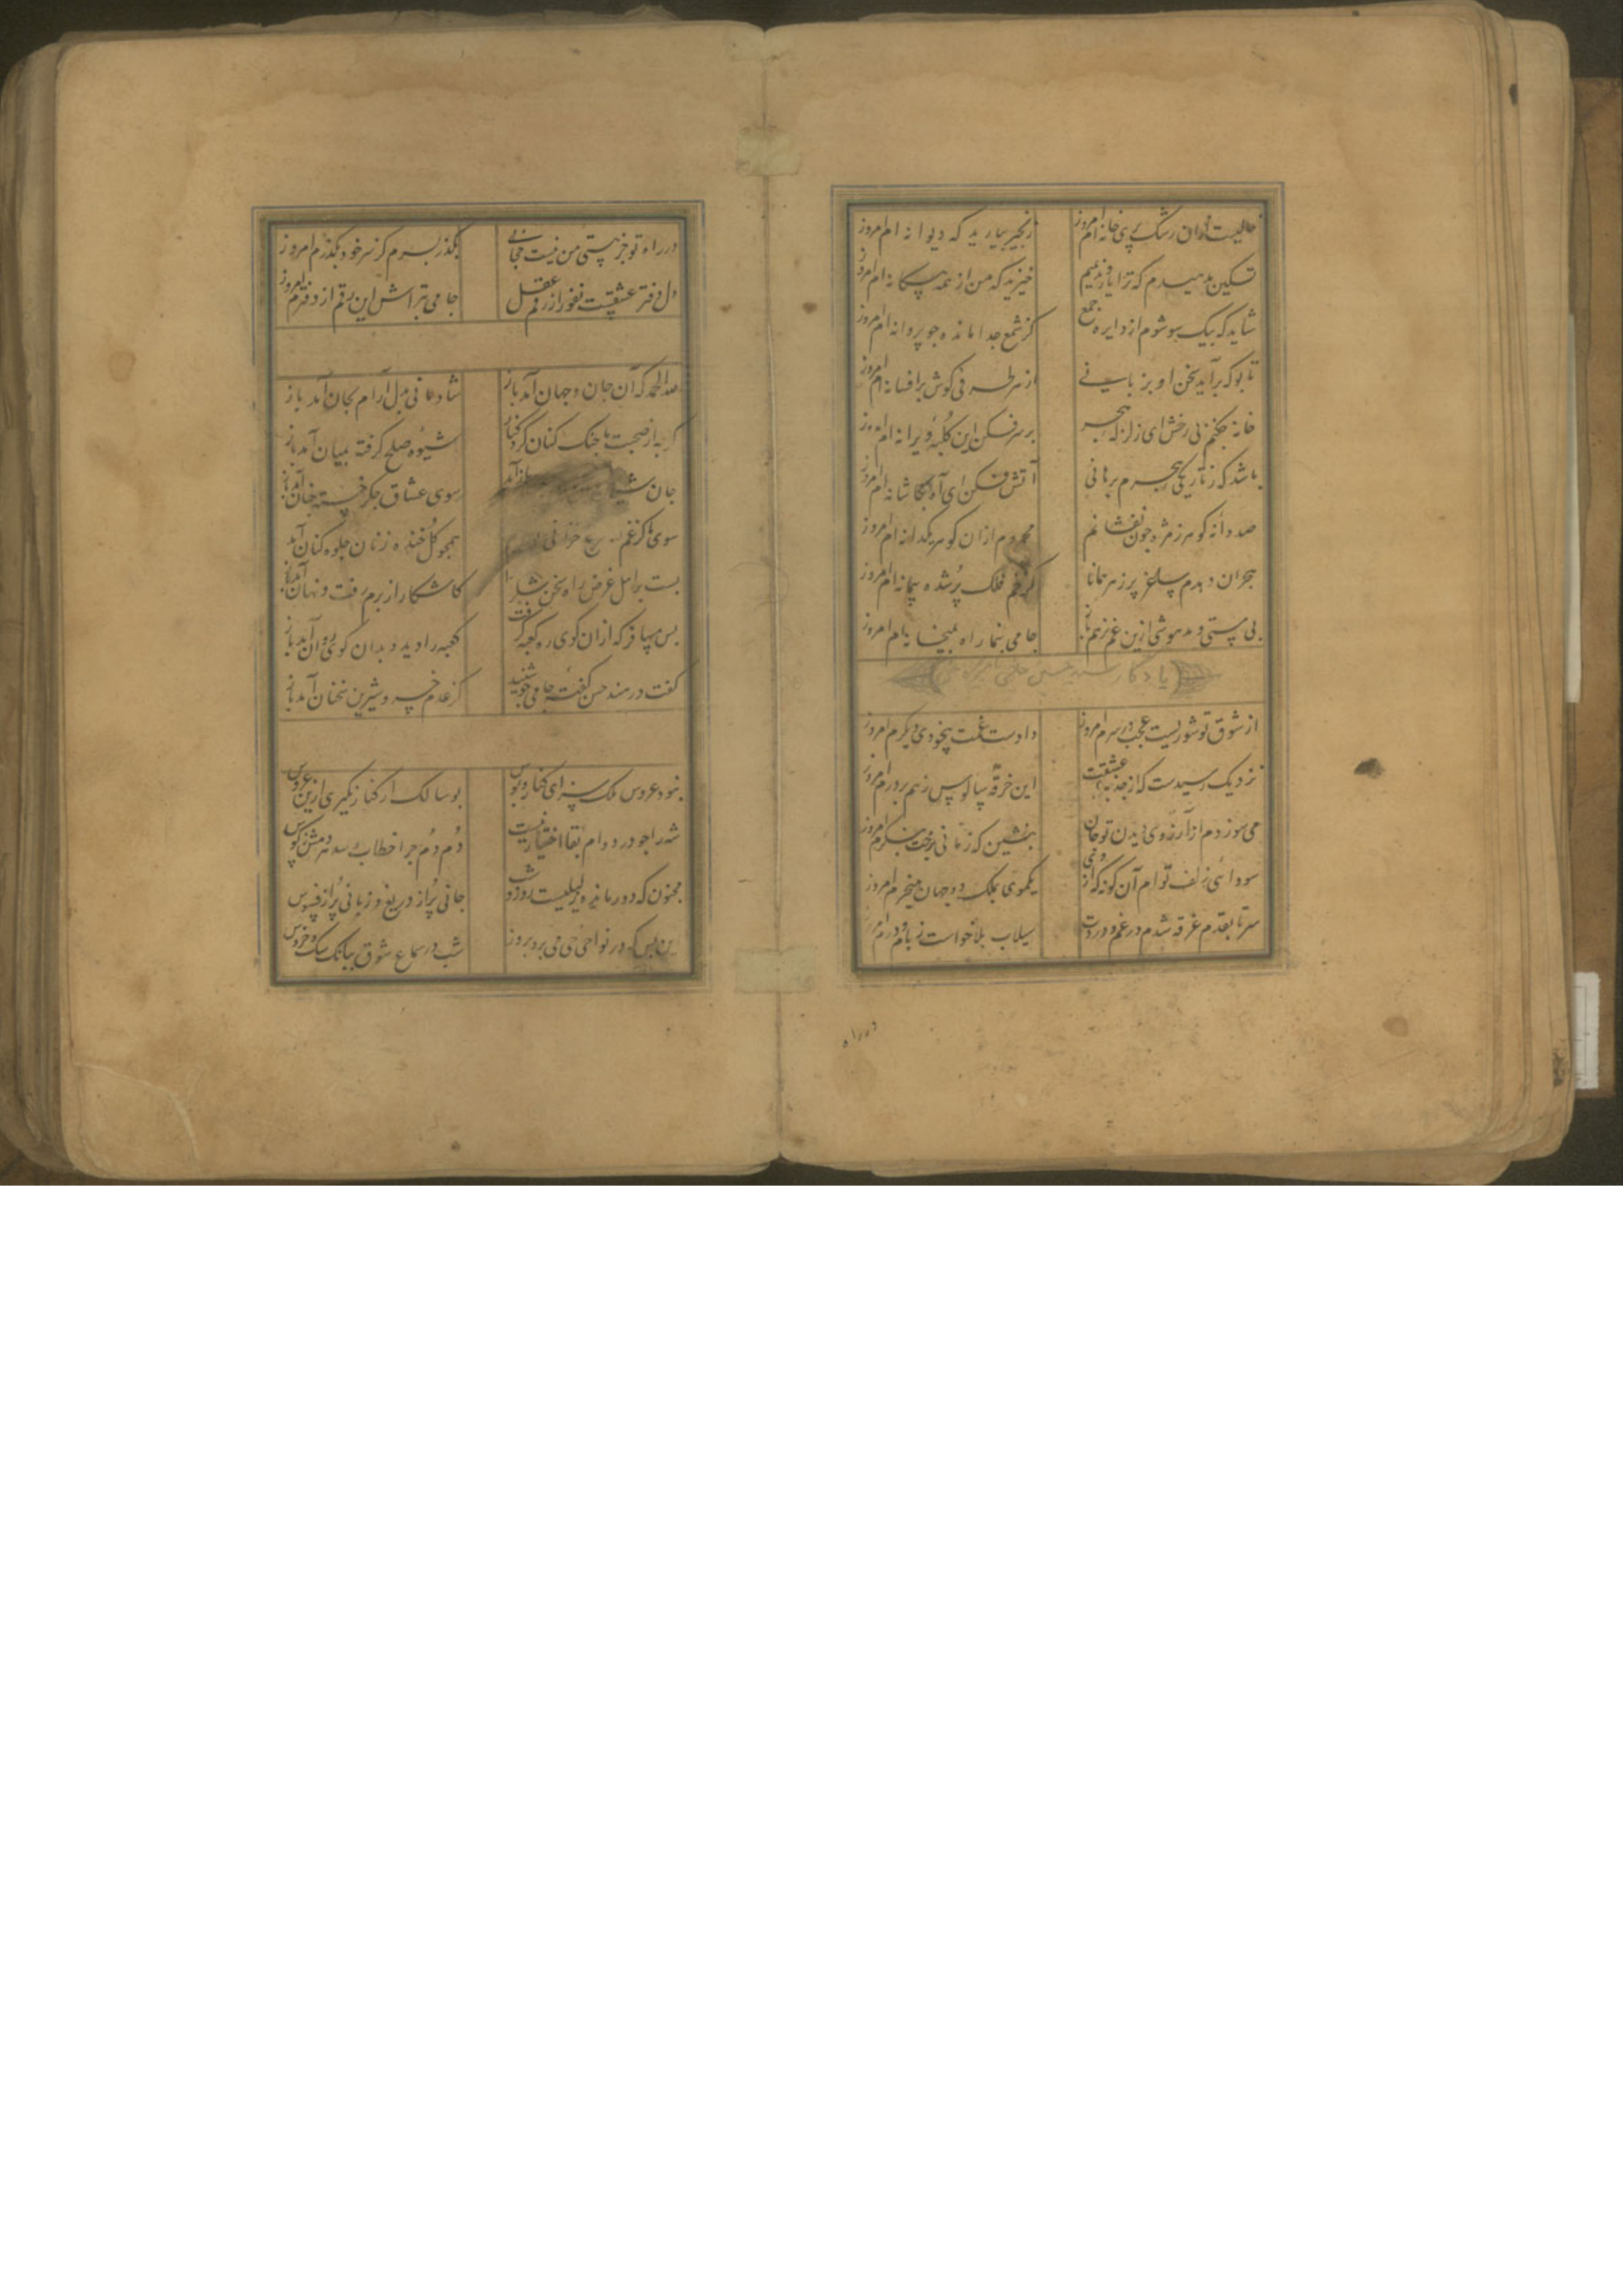 خالیست ازان رشک پری خانه ام امروز
زنجیر بیارید که دیوانه ام امروز
تسکین مدهیدم که ترا یار و ندیمیم
خیزید که من از همه بیکانه ام امروز
شاید که بیک سو شوم از دایره جمع
کز شمع جدا مانده جو پروانه ام امروز
تا بو که برآید سخن او بزبانی
از هر طرفی کوش بر افسانه ام امروز
خانه جکنم بی رخش ای زلزله هجر
بر سر فکن این کلبه ویرانه ام امروز
باشد که ز تاریکی هجرم برهانی
آتش فکن ای آه بکاشانه ام امروز
صد دانه کوهر ز مژه جون نفشانم
محروم ازان کوهر یکدانه ام امروز
هجران دهدم ساغر پر زهر همانا
کز خم فلک پر شده پیمانه ام امروز
بی مستی و مدهوشی ازین غم نرهم باز
جامی بنما راه بمیخانه ام امروز
یادکار سید حسن
از شوق تو شوریست عجب در سرم امروز
دادست غمت بیخودی دیکرم امروز
نزدیک رسیدست که از جذبه عشقت
این خرقه سالوس ز هم بر درم امروز
می سوزدم از آرزوی دیدن تو جان
بنشین که زمانی برخت بنکرم امروز
سودائی زلف تو ام آن کونه که از وی
یکموی بملک دو جهان میخرم امروز
سر تا بقدم غرقه شدم در غم و دردت
سیلاب بلا خواست ز بام و درم امروز
در راه
در راه تو جز هستی من نیست حجابی
بکذر بسرم کز سر خود بکذرم امروز
دل دفتر عشقست نفور از رقم عقل
جامی بتراش این رقم از دفترم امروز
لله الحمد که آن جان و جهان آمد باز
شادمانی بدل آرام بجان آمد باز
کر به از صحبت ما جنک کنان کرد کنار
شیوه صلح کرفته بمیان آمد باز
جان
سوی عشاق جکر خسته جنان آمد باز
سوی ما کز غم
همجو کل خنده زنان جلوه کنان آمد باز
بست بر اهل غرض راه سخن شکر خدا
کاشکار از برم رفت و نهان آمد باز
بس مسافر که ازان کوی ره کعبه کرفت
کعبه را دید و بدان کوی روان آمد باز
کفت در مسند حسن کفته جامی جو شنید
کز عدم خسرو شیرین سخنان آمد باز
نبود عروس ملک سزای کنار و بوس
بوسا لک ار کنار نکیری ازین عروس
شه را جو در دوام بقا اختیار نیست
دم دم جرا خطاب رسد هر دمش ز کوس
مجنون که دور مانده ز لیلیست روز و شب
جانی پر از دریغ و زبانی پر از فسوس
زین بس که در نواحی حی می برد بروز
شب در سماع شوق ببانک سک و خروس